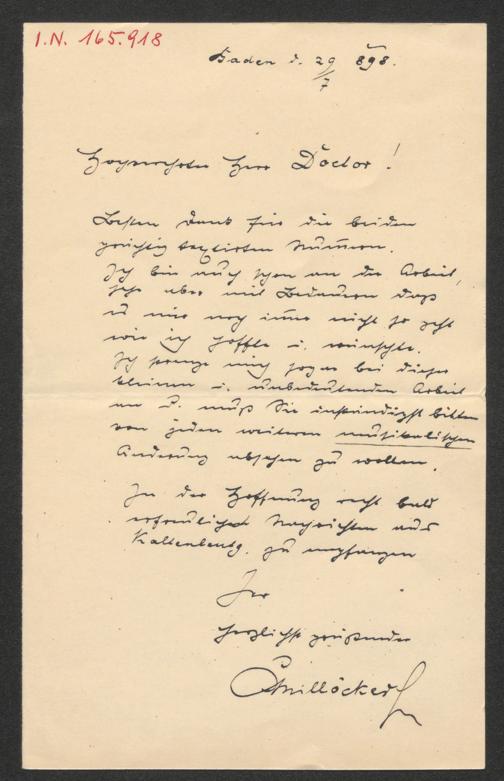 I.N. 165.918
Baden d. 29/7 898.
Hochverehrter Herr Doctor!
Besten Dank für die beiden
prächtig textirten Nummern.
Ich bin auch schon an der Arbeit,
sehe aber mit Bedauern daß
es mir noch immer nicht so geht
wie ich hoffte u. wünschte.
Ich strenge mich sogar bei dieser
kleinen u. unbedeutenden Arbeit
an u. muß Sie inständigst bitten
von jeder weiteren musikalischen
Änderung absehen zu wollen.
In der Hoffnung recht bald
erfreuliche Nachrichten aus
Kaltenleutg. zu empfangen
Ihr
herzlichst grüßender
CMillöcker